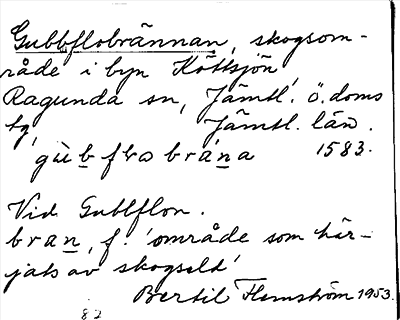 Gubbflobrännan, skogsom-
råde i byn Köttsjön,
Ragunda sn, Jämtl. ö. doms
tg, Jämtl. län.
gùbflobräna 1583.
Vid Gubbflon.
bran, f. 'område som här-
jats av skogseld'
Bertil Flemström 1953.
82